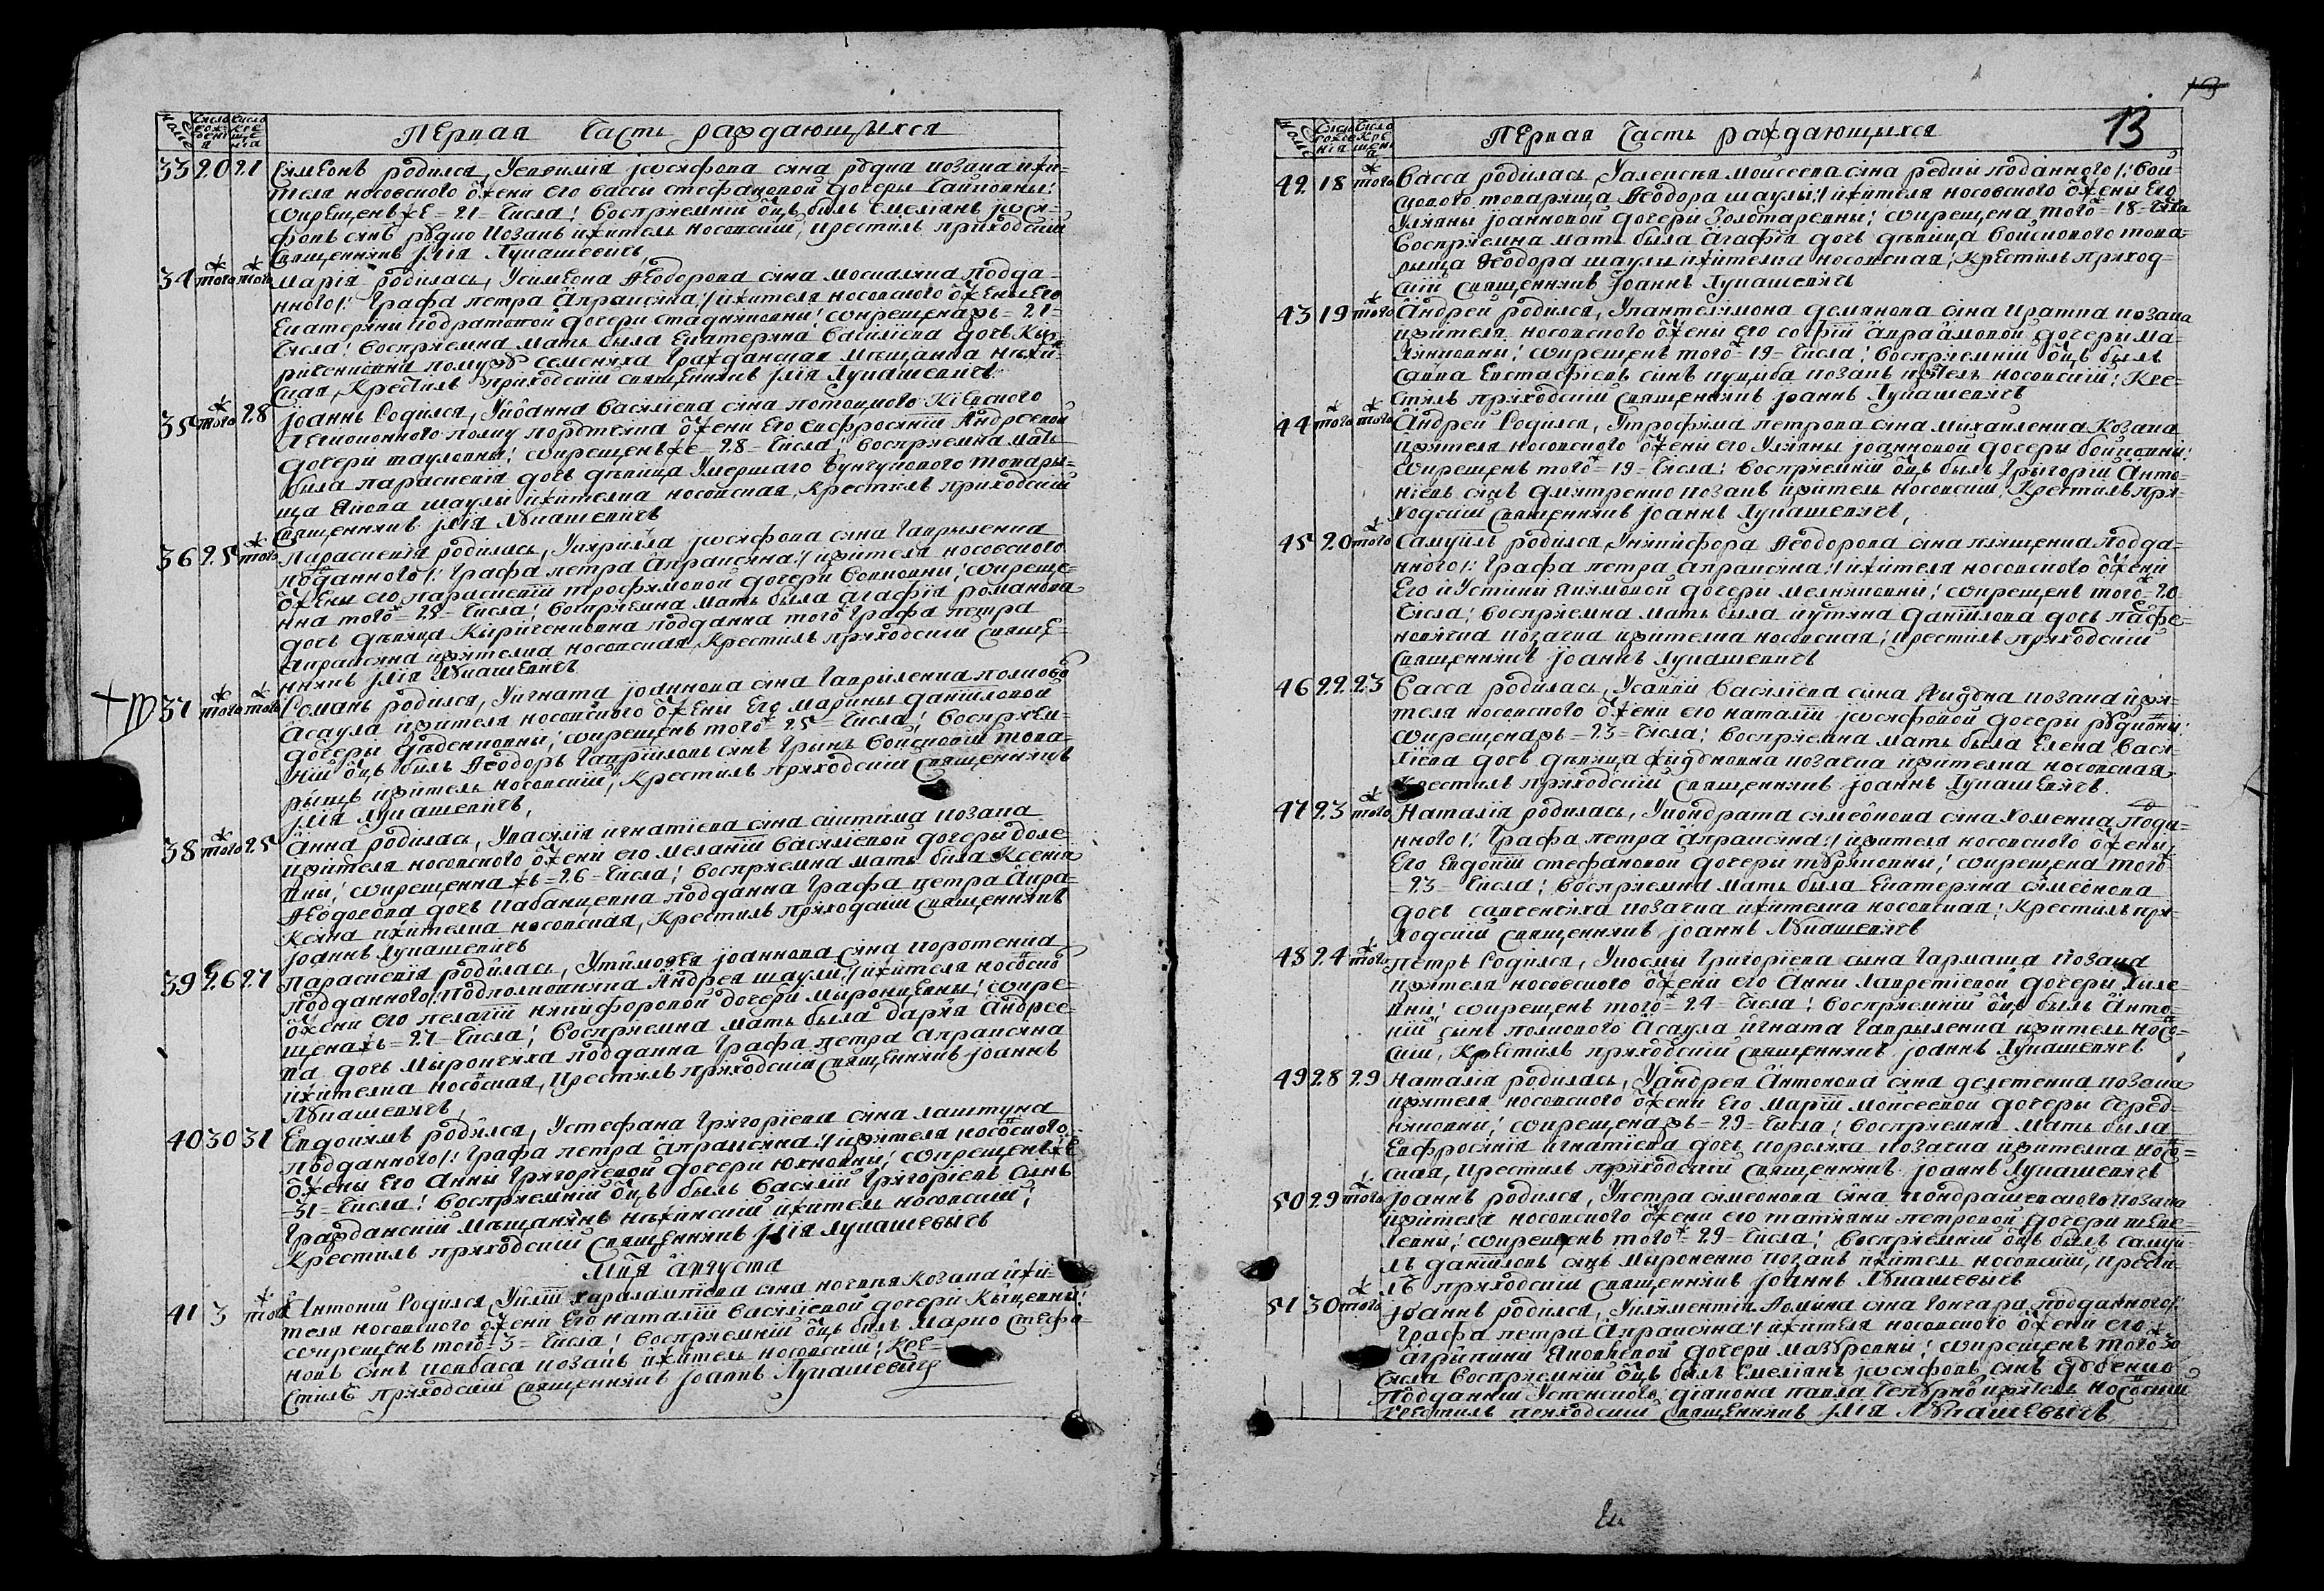 Первая Часть раждающихся
33 20 21 Сімеонъ родился, Уевѳимія Іѡсифова сина рудка козака ижи-
теля носовского ѡ жени его васси стефановой дочеры
ѡкрещенъ же = 21 = Числа: воспріемній ѡцъ билъ емеліанъ Іѡси-
фовъ синъ рудко козакъ ижитель носовскій, крестилъ приходскій
Священникъ Ілія Лукашевичъ,
34 того того марія родилась, Усимеона Ѳеодорова сина москаляка подда-
нного /: Графа петра Апраксина :/ ижителя носовского ѡ жены его
Екатерини кодратовой дочери ѡкрещена жъ = 21 =
Числа: воспріемна мать была Екатерина васіліева дочъ
Гражданская мѣщанка нѣжи-
ская, Крестилъ приходскій священникъ Ілія Лукашевичъ
35 того 28 Іоаннъ Родился, Уіоанна василіева сина Кіевского
полку ѡ жени его евфросиніи Андреевой
дочери шауловны: ѡкрещенъ же = 28 = Числа: воспріемна мать
была параскевія дочъ дѣвица Умершаго бунчукового товары-
ща якова шаулы ижителка носовская, Крестилъ приходскій
Священникъ Ілія Лукашевичъ
36 25 того Параскевія родилась, Укирилла Іѡсифова сина Гаврыленка
подданного /: Графа петра Апраксина :/ ижителя носовского
ѡ жены его параскевіи трофимовой дочери ѡкреще-
нна того = 25 = Числа: воспріемна мать была агафія романова
дочъ дѣвица Кириченковна подданна того Графа петра
апраксина ижителка носовская, Крестилъ приходскій Свяще-
нникъ Ілія Лукашевичъ
37 того того Романъ родился, Уигната Іоаннова сина Гавриленка полково
Асаула ижителя носовского ѡ жены его марины даніиловой
дочеры ѡкрещенъ того = 25 = Числа: воспріем-
ній ѡцъ билъ Ѳеодоръ Гавріиловъ синъ войсковій това-
рыщъ ижитель носовскій, Крестилъ приходскій Священникъ
Ілія Лукашевичъ,
38 того 25 Анна родилась, Увасилія игнатіева сина козака
ижителя носовского ѡ жени его меланіи василіевой дочеры
ѡкрещенна жъ = 26 = Числа: воспріемна мать била Ксенія
Ѳеодосова дочъ подданна Графа петра Апра-
ксина ижителка носовская, Крестилъ приходскій Священникъ
Іоаннъ Лукашевичъ
39 26 27 Параскевія родилась, Утимоѳея Іоаннова сина коротенка
подданного /: подполковника Андрея шаули :/ ижителя носовско
ѡ жени его пелагіи никифоровой дочери мыронцевны: ѡкре-
щена жъ = 27 = Числа: Воспріемна мать была дарія Андрее-
ва дочъ Мырончиха подданна Графа петра апраксина
ижителка носовская, Крестилъ приходскій Священникъ Іоаннъ
Лукашевичъ,
40 30 31 Евдокимъ родился, Устефана Григоріева сина лаштуна
подданного /: Графа петра апраксина :/ ижителя носовского
ѡ жены его Анны Григоріевой дочери юхновны: ѡкрещенъ же
= 31 = Числа: Воспріемній ѡцъ былъ василій Григоріевъ синъ
Гражданскій мѣщанинъ нѣжинскій ижитель носовскій:
Крестилъ приходскій Священникъ Ілія Лукашевичъ
Мця августа
41 3 того Антоній Родился, Уиліи харалампіева сина Козака ижи-
теля носовского ѡ жени его наталіи василіевой дочери
ѡкрещенъ того = 3 = Числа: воспріемній ѡцъ билъ марко стефа-
новъ синъ ковбаса козакъ ижитель носовскій: Кре-
стилъ приходскій Священникъ Іоаннъ Лукашевичъ
13
Первая Часть раждающихся
42 18 того Васса родилась, Уалексѣя моисеева сина редки подданного /: вой-
скового товарища Ѳеодора шаулы :/ ижителя носовского ѡ жены его
Уляны Іоанновой дочери Золотаревны: ѡкрещена того = 18 = Числа
воспріемна мать была Агафія дочъ дѣвица войскового това-
рыща Ѳеодора шаулы ижителка носовская, Крестилъ приход-
скій Священникъ Іоаннъ Лукашевичъ
43 19 того Андрей родился, Упантелимона демянова сина козака
ижителя носовского ѡ жены его софіи Авраамовой дочери ма-
ѡкрещенъ того = 19 = Числа: Воспріемній ѡцъ былъ
Савва Евстафіевъ синъ козакъ ижитель носовскій: Кре-
стилъ приходскій Священникъ Іоаннъ Лукашевичъ
44 того того Андрей Родился, Утрофима петрова сина михаиленка Козака
ижителя носовского ѡ жени его Уляны Іоанновой дочеры бойковны:
ѡкрещенъ того = 19 = Числа: воспріемній ѡцъ былъ Григорій Анто-
ніевъ синъ дмитренко козакъ ижитель носовскій, Крестилъ при-
ходскій Священникъ Іоаннъ Лукашевичъ,
45 20 того Самуилъ родился, Уникифора Ѳеодорова сина подда-
нного /: Графа петра апраксина :/ ижителя носовского ѡ жени
его Иустини якимовой дочери мелниковны: ѡкрещенъ того = 20
Числа: воспріемна мать была даніилова дочъ
козачка ижителка носовская: Крестилъ приходскій
Священникъ Іоаннъ Лукашевичъ
46 22 23 Васса родилась, Усаввы василіева сина козака ижи-
теля носовского ѡ жени его наталіи Іѡсифовой дочеры рудковны:
ѡкрещена жъ = 23 = Числа: воспріемна мать была Елена васи-
ліева дочъ дѣвица козачка ижителка носовская,
Крестилъ приходскій Священникъ Іоаннъ Лукашевичъ.
47 23 того Наталія родилась, Укондрата симеонова сина хоменка подда-
нного /: Графа петра апраксина :/ ижителя носовского ѡ жены
его Евдокіи стефановой дочери ѡкрещена того
= 23 = Числа: воспріемна мать была Екатерина симеонова
дочъ козачка ижителка носовская: Крестилъ при-
ходскій Священникъ Іоаннъ Лукашевичъ
48 24 того Петръ Родился, Укосмы Григоріева сина Гармаша Козака
ижителя носовского ѡ жени его Анни Лаврентіевой дочери
ѡкрещенъ того = 24 = Числа: воспріемній ѡцъ былъ Анто-
ній сынъ полкового Асаула игната Гаврыленка ижитель носо-
скій, Крестилъ приходскій священникъ Іоаннъ Лукашевичъ
49 28 29 Наталія родилась, Уандрея Антонова сина козака
ижителя носовского ѡ жени его маріи моисеевой дочеры серед-
няковны: ѡкрещена жъ = 29 = Числа: воспріемна мать была
Евфросинія игнатіева дочъ козачка ижителка носо-
ская, Крестилъ приходскій Священникъ Іоаннъ Лукашевичъ
50 29 того Іоаннъ родился, Упетра симеонова сина кондрашевского козака
ижителя носовского ѡ жени его татіяни петровой дочери
ѡкрещенъ того = 29 = Числа: воспріемній ѡцъ былъ самуи-
лъ даніиловъ синъ мыроненко козакъ ижитель носовскій, крести-
лъ приходскій священникъ Іоаннъ Лукашевичъ
51 30 того Іоаннъ родился, Уклиментія сина Гончара подданного /:
Графа петра Апраксина :/ ижителя носовского ѡ жени его
агрипини яковлевой дочери мазуровны: ѡкрещенъ того 30
Числа воспріемній ѡцъ былъ Емеліанъ Іѡсифовъ синъ
подданній Успенского діакона павла ижитель носовскій
крестилъ приходскій священникъ Ілія Лукашевичъ